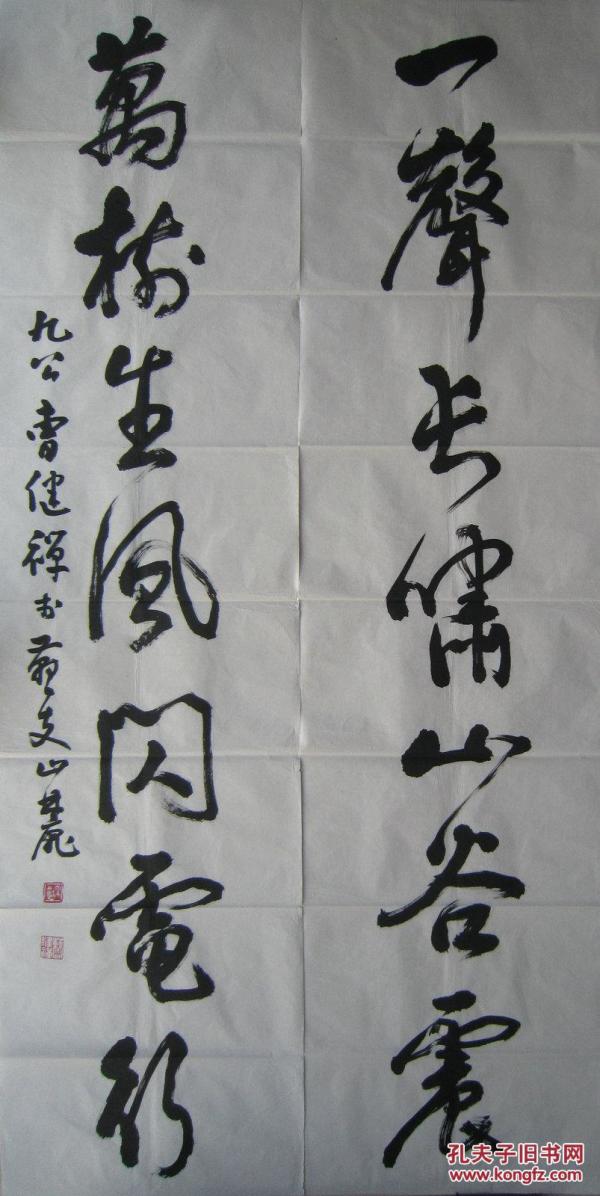 一聲长嘯山谷震
萬樹生風閃電行
九公曹健禪书
支山麓
孔夫子旧书网
www.kongfz.com